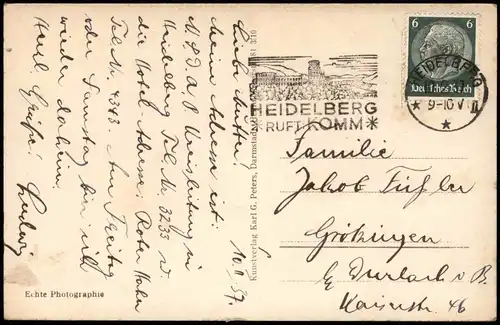 10. II 37.
Liebe Mutter!
Meine Adresse ist:
N.S.D.A.P. Kreisleitung in
Heidelberg Tel. Nr. 3233 u.
die Hotel-Adresse, Roter Hahn
Tel. Nr. 4343 Am Freitag
oder Samstag bin ich
wieder daheim.
Herzl. Grüße!
Ludwig
Echte Photographie
Kunstverlag Karl G. Peters, Darmstadt
HEIDELBERG
RUFT KOMM
HEIDELBERG
9-10 V
6 6
Deutsches Reich
Familie
Jakob
Grötzingen
b/ Durlach i. B.
Kaiserstr. 46